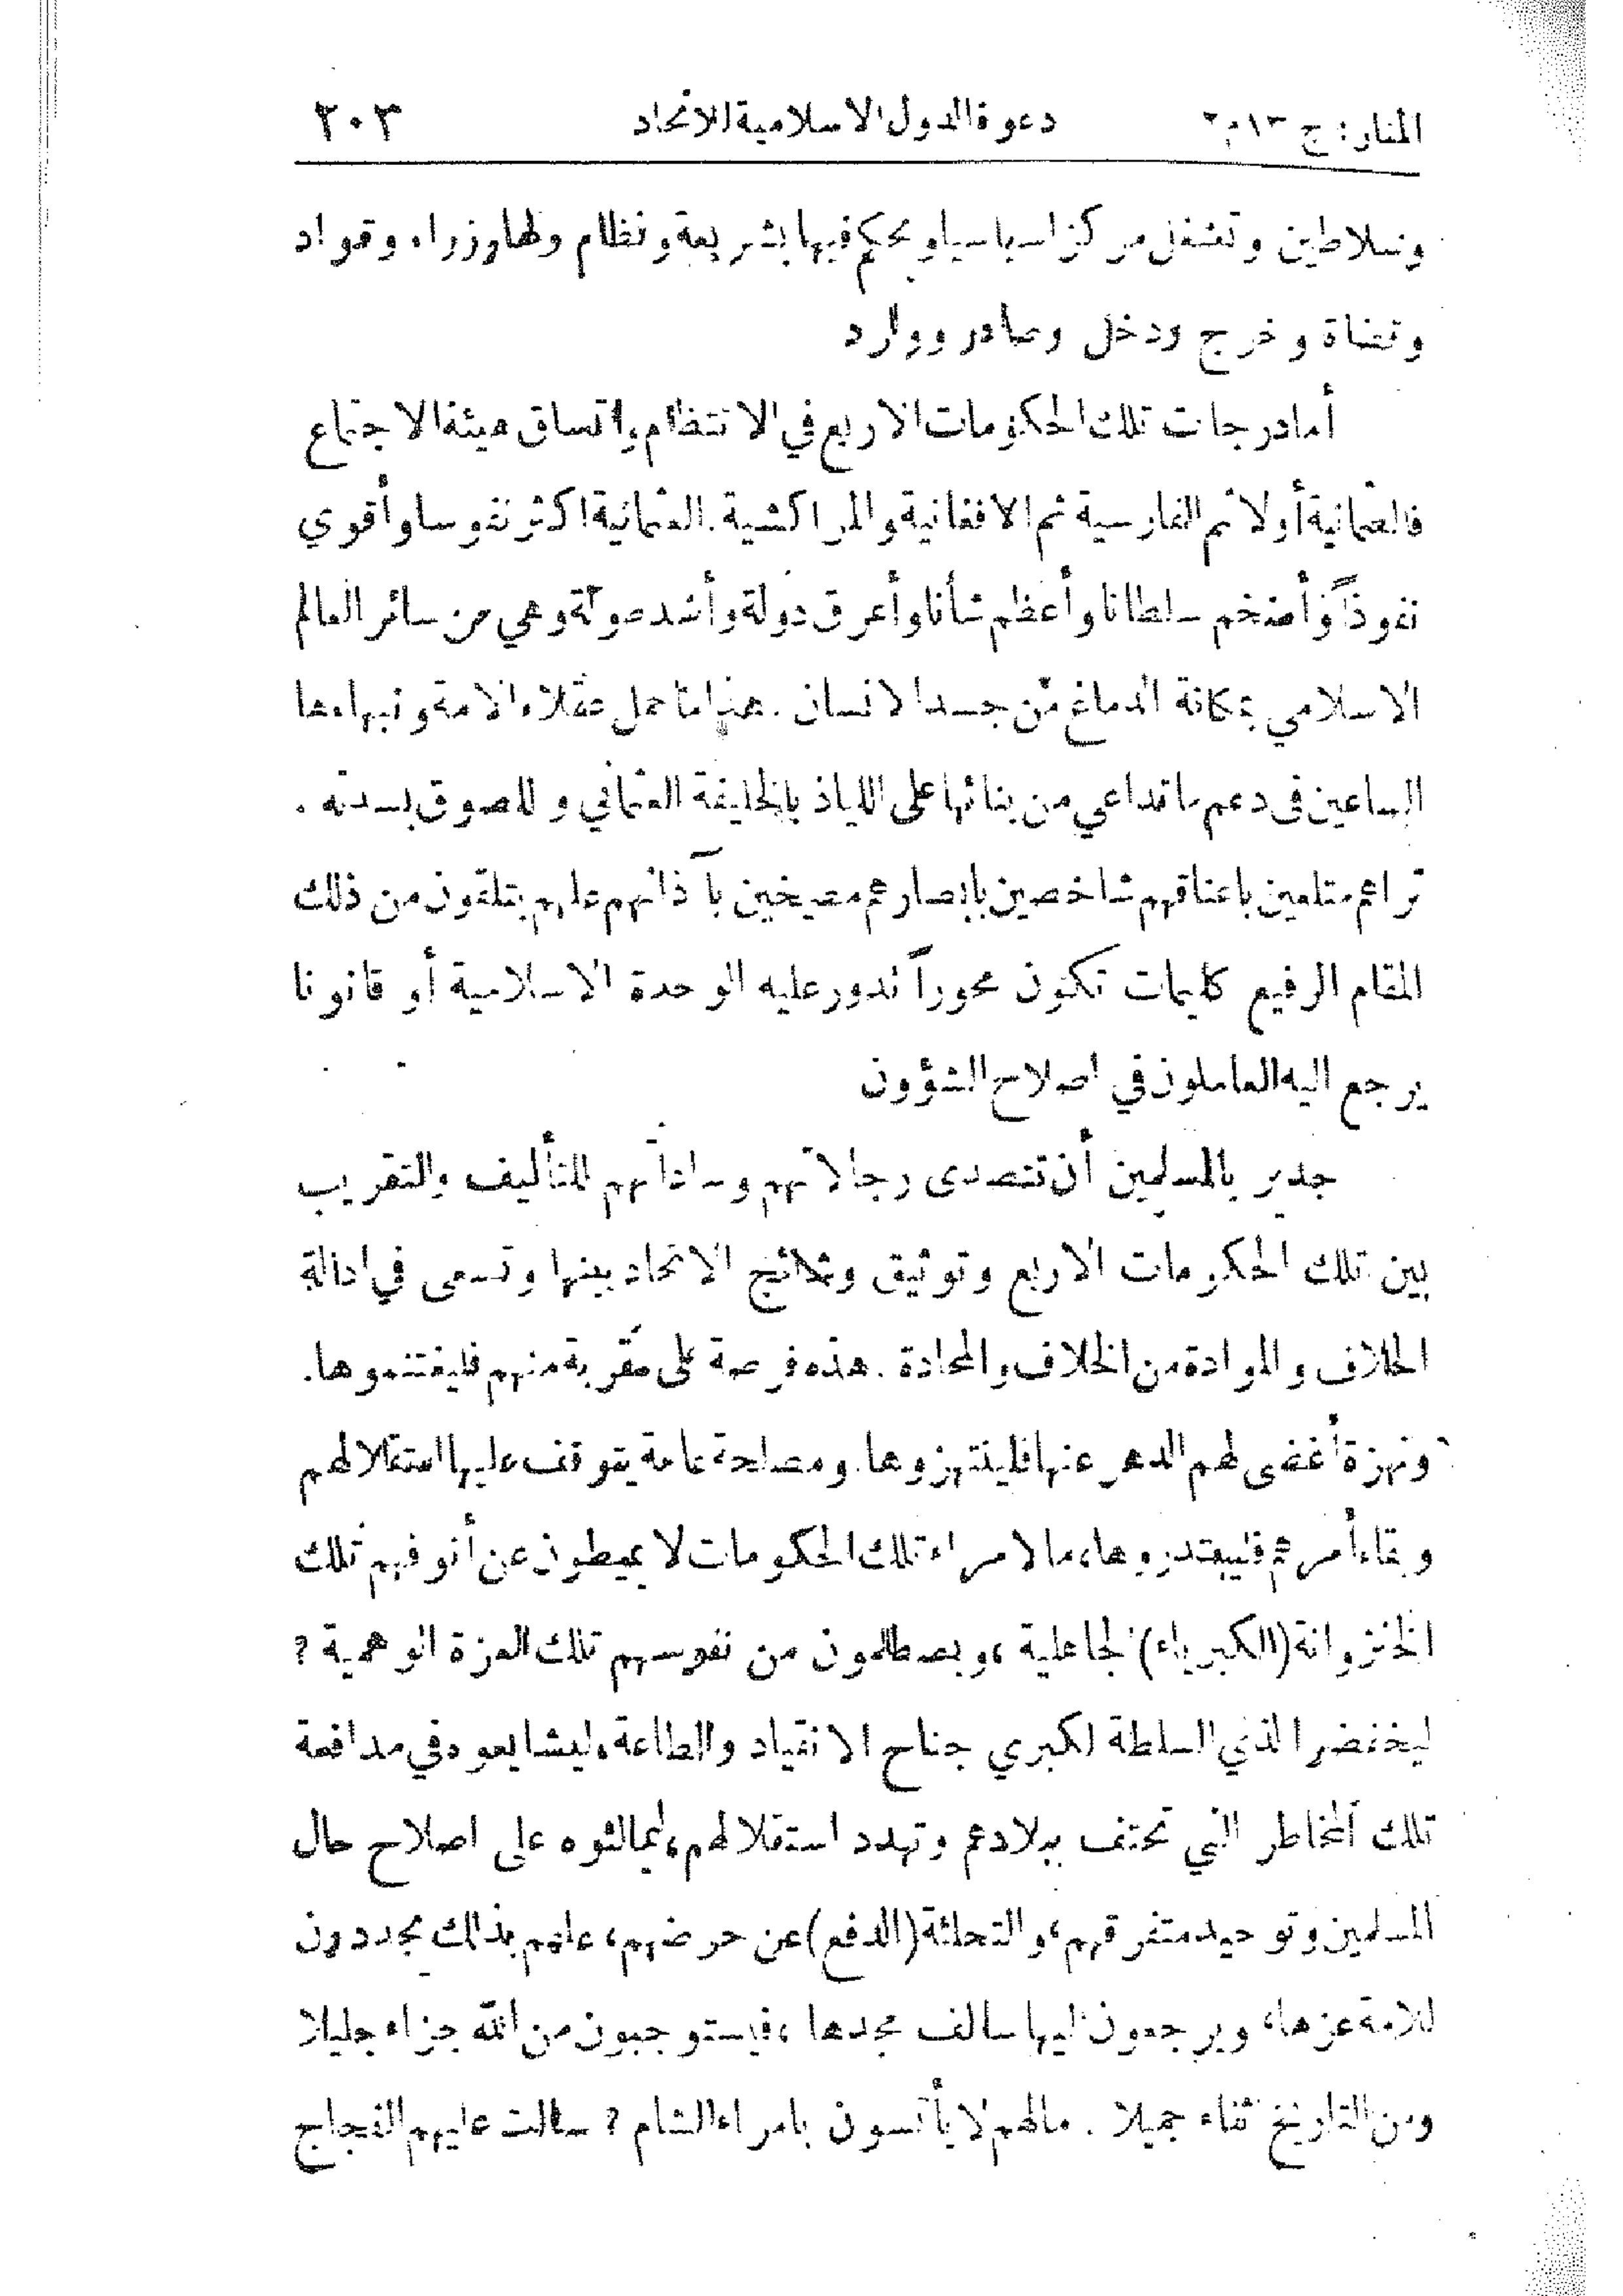 المنار: ج ١٣ م ٢ دعوة الدول الاسلامية للاتحاد ٢٠٣
وسلاطين وتشغل مركزا سياسيا ويحكم فيها بشريعة ونظام ولها وزراء وقواد
وقضاة وخرج ودخل وصادر ووارد
أما درجات تلك الحكومات الاربع في الانتظام واتساق هيئة الاجتماع
فالعثمانية أولا ثم الفارسية ثم الافغانية والمراكشية. العثمانية اكثر نفوسا وأقوي
نفوذاً وأضخم سلطانا وأعظم شأنا وأعرق دولة وأشد صولة وهي من سائر العالم
الاسلامي بمكانة الدماغ من جسد الانسان. هذا ما حمل عقلاء الامة ونبهاءها
الساعين في دعم ما تداعي من بنائها على اللياذ بالخليفة العثماني واللصوق بسدته.
تراهم متلعين باعناقهم شاخصين بابصارهم مصيخين بآذانهم علهم يتلقون من ذلك
المقام الرفيع كليمات تكون محوراً تدور عليه الوحدة الاسلامية أو قانونا
يرجع اليه العاملون في اصلاح الشؤون
جدير بالمسلمين أن تتصدى رجالاتهم وساداتهم للتأليف والتقريب
بين تلك الحكومات الاربع وتوثيق وشائج الاتحاد بينها وتسعى في ادالة
الحلاف والموادة من الخلاف والمحادة. هذه فرصة على مقربة منهم فليغتنموها.
ونهزة أغضى لهم الدهر عنها فلينتهزوها. ومصلحة عامة يتوقف عليها استقلالهم
وبقاء أمرهم فليبتدروها، ما لامراء تلك الحكومات لا يميطون عن أنوفهم تلك
الخنزوانة (الكبرياء) الجاهلية، ويصطلمون من نفوسهم تلك العزة الوهمية ؟
ليخفضوا لذي السلطة لكبري جناح الانقياد والطاعة، ليشايعوه في مدافعة
تلك المخاطر التي تحتف ببلادهم وتهدد استقلالهم، ليمالئوه على اصلاح حال
المسلمين وتوحيد متفرقهم، والتحلئة (الدفع) عن حوضهم، علهم بذلك يجددون
للامة عزها، ويرجعون اليها سالف مجدها، فيستوجبون من الله جزاء جليلا
ومن التاريخ ثناء جميلا. مالهم لا يأتسون بامراء الشام ؟ سالت عليهم الفجاج